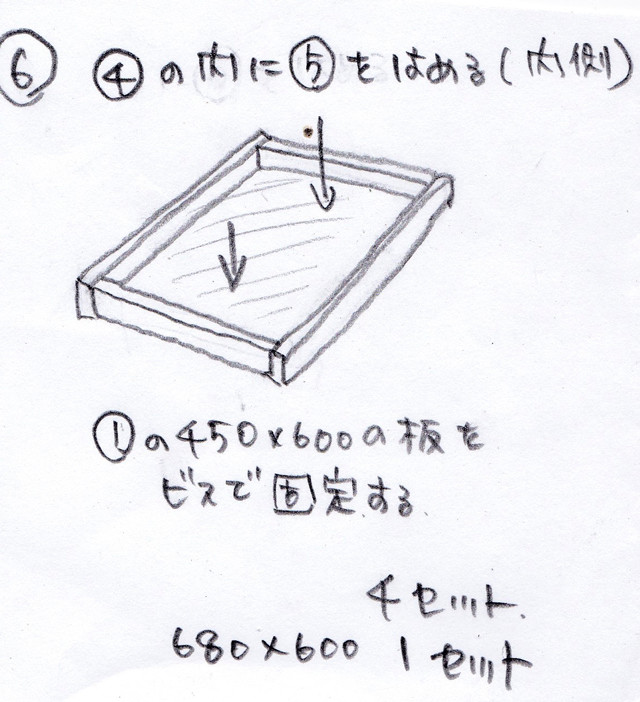 ⑥ ④の内に⑤をはめる(内側)
①の450×600の板を
ビスで固定する.
4セット.
680×600 1セット